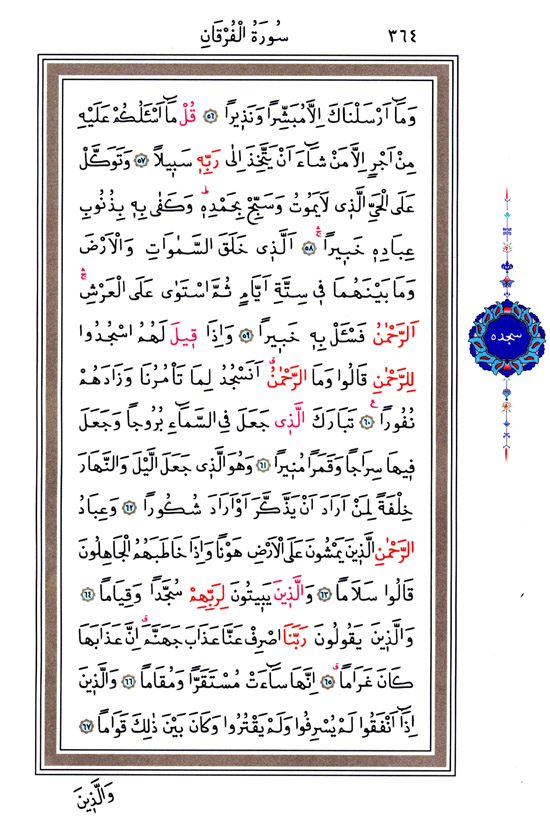 ٣٦٤ سُورَةُ الْفُرْقَانِ
وَمَٓا اَرْسَلْنَاكَ اِلَّا مُبَشِّرًا وَنَذِيرًا ﴿٥٦﴾ قُلْ مَٓا اَسْـَٔلُكُمْ عَلَيْهِ
مِنْ اَجْرٍ اِلَّا مَنْ شَٓاءَ اَنْ يَتَّخِذَ اِلٰى رَبِّهٖ سَبٖيلًا ﴿٥٧﴾ وَتَوَكَّلْ
عَلَى الْحَيِّ الَّذٖى لَا يَمُوتُ وَسَبِّحْ بِحَمْدِهٖ ط وَكَفٰى بِهٖ بِذُنُوبِ
عِبَادِهٖ خَبٖيرًا ج ﴿٥٨﴾ اَلَّذٖى خَلَقَ السَّمٰوَاتِ وَالْاَرْضَ
وَمَا بَيْنَهُمَا فٖى سِتَّةِ اَيَّامٍ ثُمَّ اسْتَوٰى عَلَى الْعَرْشِ ج
اَلرَّحْمٰنُ فَسْـَٔلْ بِهٖ خَبٖيرًا ﴿٥٩﴾ وَاِذَا قٖيلَ لَهُمُ اسْجُدُوا
لِلرَّحْمٰنِ قَالُوا وَمَا الرَّحْمٰنُ ق اَنَسْجُدُ لِمَا تَأْمُرُنَا وَزَادَهُمْ
سجده
نُفُورًا ع ﴿٦٠﴾ تَبَارَكَ الَّذٖى جَعَلَ فِى السَّمَٓاءِ بُرُوجًا وَجَعَلَ
فٖيهَا سِرَاجًا وَقَمَرًا مُنٖيرًا ﴿٦١﴾ وَهُوَ الَّذٖى جَعَلَ الَّيْلَ وَالنَّهَارَ
خِلْفَةً لِمَنْ اَرَادَ اَنْ يَذَّكَّرَ اَوْ اَرَادَ شُكُورًا ﴿٦٢﴾ وَعِبَادُ
الرَّحْمٰنِ الَّذٖينَ يَمْشُونَ عَلَى الْاَرْضِ هَوْنًا وَاِذَا خَاطَبَهُمُ الْجَاهِلُونَ
قَالُوا سَلَامًا ﴿٦٣﴾ وَالَّذٖينَ يَبٖيتُونَ لِرَبِّهِمْ سُجَّدًا وَقِيَامًا ﴿٦٤﴾
وَالَّذٖينَ يَقُولُونَ رَبَّنَا اصْرِفْ عَنَّا عَذَابَ جَهَنَّمَ ق اِنَّ عَذَابَهَا
كَانَ غَرَامًا ق ﴿٦٥﴾ اِنَّهَا سَٓاءَتْ مُسْتَقَرًّا وَمُقَامًا ﴿٦٦﴾ وَالَّذٖينَ
اِذَٓا اَنْفَقُوا لَمْ يُسْرِفُوا وَلَمْ يَقْتُرُوا وَكَانَ بَيْنَ ذٰلِكَ قَوَامًا ﴿٦٧﴾
وَالَّذٖينَ